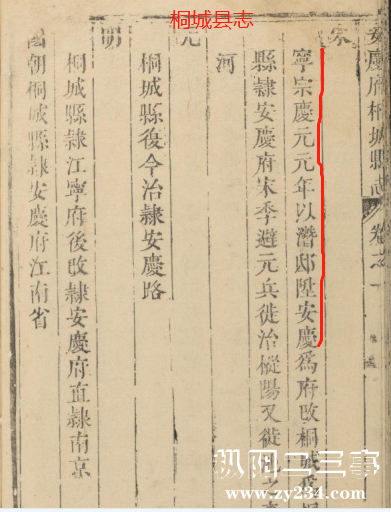 桐城县志
安慶府桐城縣志 卷之一
宋
寧宗慶元元年以潛邸陞安慶爲府改桐城
縣隸安慶府宋季避元兵徙治樅陽又徙
河
元
桐城縣復今治隸安慶路
明
桐城縣隸江寧府後改隸安慶府直隸南京
國朝桐城縣隸安慶府江南省
枞阳二三事
www.zy234.com